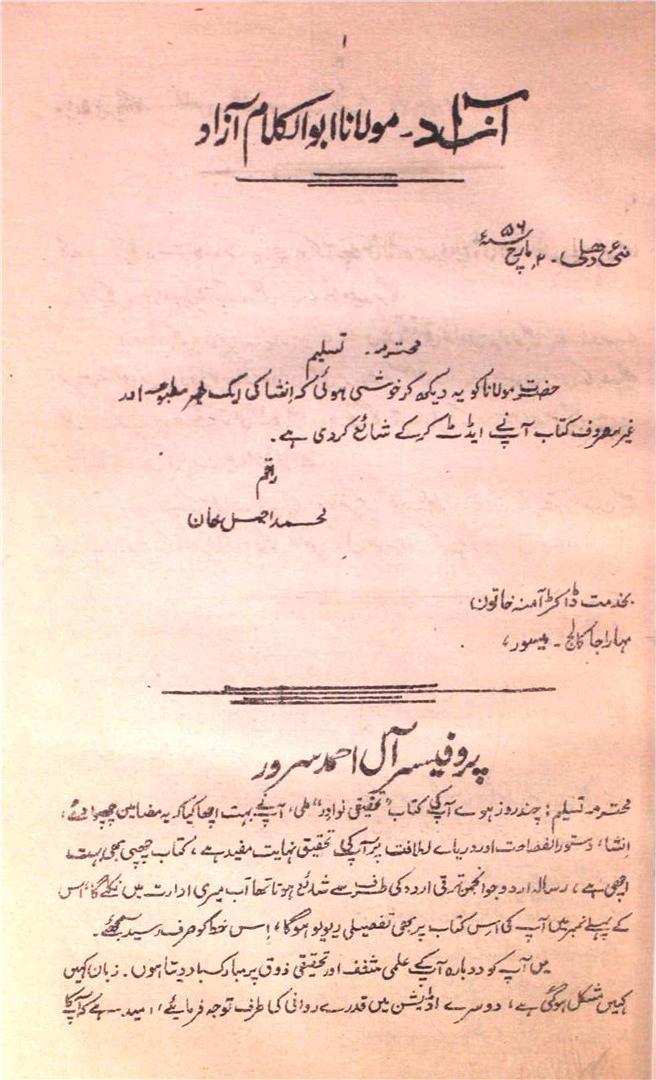 ۱
آراء - مولانا ابوالکلام آزاد
نئی دھلی - ۲؍ مارچ ۵۶ سنہ ء
محترمہ - تسلیم
حضرت مولانا کو یہ دیکھ کر خوشی ہوئی کہ اِنشا کی ایک غیر مطبوعہ اور
غیر معروف کتاب آپ نے ایڈٹ کرکے شائع کردی ہے۔
راقم
محمد اجمل خان
بخدمت ڈاکٹر آمنہ خاتون
مہاراجا کالج - میسور،
پروفیسر آل احمد سرور
محترمہ تسلیم؛ چند روز ہوے آپ کی کتاب "تحقیقی نوادر" ملی، آپ نے بہت اچھا کیا کہ یہ مضامین چھپوا دئے،
اِنشا، دستور الفصاحت اور دریاے لطافت پر آپ کی تحقیق نہایت مفید ہے، کتاب چھپی بھی بہت
اچھی ہے، رسالہ اردو جو انجمن ترقی اردو کی طرف سے شائع ہوتا تھا اب میری ادارت میں نکلے گا، اس
کے پہلے نمبر میں آپ کی اس کتاب پر بھی تفصیلی ریویو ہوگا، اِس خط کو صرف رسید سمجھئے۔
میں آپ کو دوبارہ آپ کے علمی شغف اور تحقیقی ذوق پر مبارک باد دیتا ہوں۔ زبان کہیں
کہیں مشکل ہوگئی ہے، دوسرے اڈیشن میں قدرے روانی کی طرف توجہ فرمائیے، امید ہے کہ آپ کا